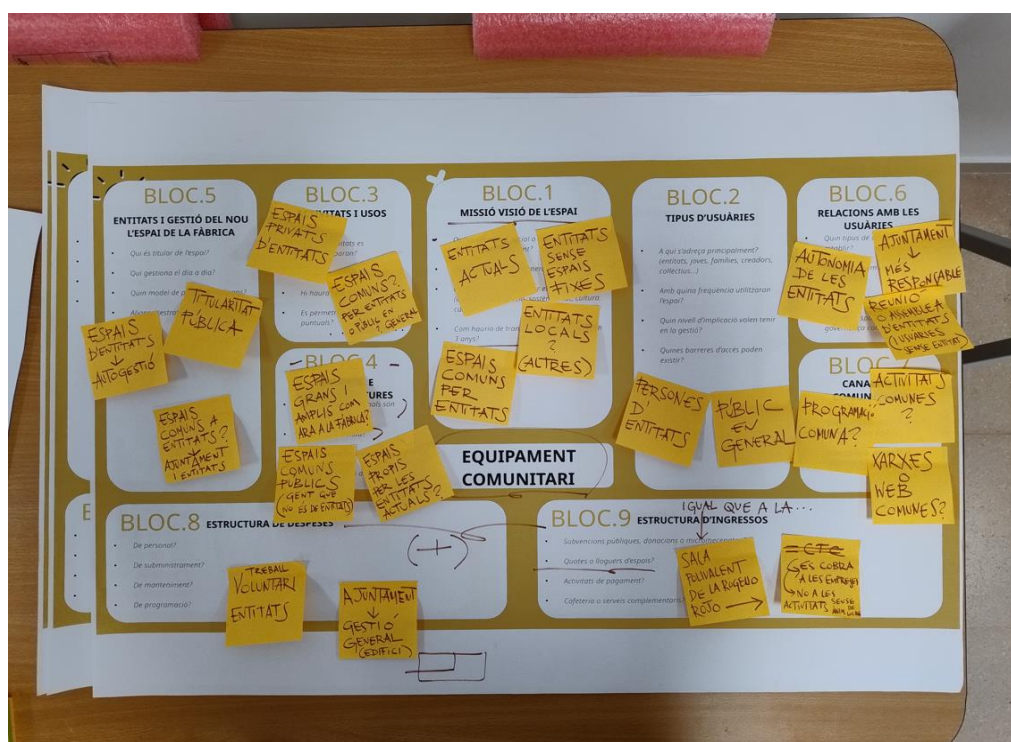 BLOC.5
ENTITATS I GESTIÓ DEL NOU
L'ESPAI DE LA FÀBRICA
Qui és titular de l'espai?
Qui gestiona el dia a dia?
Quin model de
TITULARITAT
PÚBLICA
ESPAIS
D'ENTITATS
AUTOGESTIÓ
ESPAIS
COMUNS A
ENTITATS?
AJUNTAMENT
I ENTITATS
BLOC.3
ITATS I USOS
ESPAIS
PRIVATS
D'ENTITATS
ESPAIS
COMUNS?
PER ENTITATS
O PUBLIC EN
GENERAL
Hi haurà
Es permet
puntuals?
4
ESPAIS
GRANS I
AMPLIS COM
ARA A LA FÀBRICA?
ESPAIS
COMUNS
PÚBLICS
(GENT QUE
NO ÉS DE ENTITATS)
ESPAIS
PROPIS
PER LES
ENTITATS
ACTUALS?
BLOC.1
MISSIÓ VISIÓ DE L'ESPAI
ENTITATS
ACTUALS
ENTITATS
SENSE
ESPAIS
FIXES
Com hauria de
ENTITATS
LOCALS
?
(ALTRES)
ESPAIS
COMUNS
PER
ENTITATS
BLOC.2
TIPUS D'USUÀRIES
A qui s'adreça principalment?
(entitats, joves, famílies, creadors,
collectius...)
Amb quina freqüència utilitzaran
l'espai?
Quin nivell d'implicació volen tenir
en la gestió?
Quines barreres d'accés poden
existir?
PERSONES
D'
ENTITATS
PÚBLIC
EN
GENERAL
BLOC.6
RELACIONS AMB LES
USUÀRIES
Quin tipus de
AUTONOMIA
DE LES
ENTITATS
AJUNTAMENT
MÉS
RESPONSABLE
REUNIÓ
O ASSEMBLEA
D'ENTITATS
(I USUARIES
SENSE ENTITAT)
BLOC
CANA
PROGRAMACIÓ
COMUNA?
ACTIVITATS
COMUNES
?
XARXES
O
WEB
COMUNES?
EQUIPAMENT
COMUNITARI
BLOC.8 ESTRUCTURA DE DESPESES
De personal?
De subministrament?
De manteniment?
De programació?
(+)
TREBALL
VOLUNTARI
ENTITATS
AJUNTAMENT
GESTIÓ
GENERAL
(EDIFICI)
BLOC.9 ESTRUCTURA D'INGRESSOS
IGUAL QUE A LA...
Subvencions públiques, donacions o
Quotes o lloguers d'espais?
Activitats de pagament?
Cafeteria o serveis complementaris
SALA
POLIVALENT
DE LA ROGELIO
ROJO
CTC
ES COBRA
A LES EMPRESES
NO A LES
ACTIVITATS SENSE